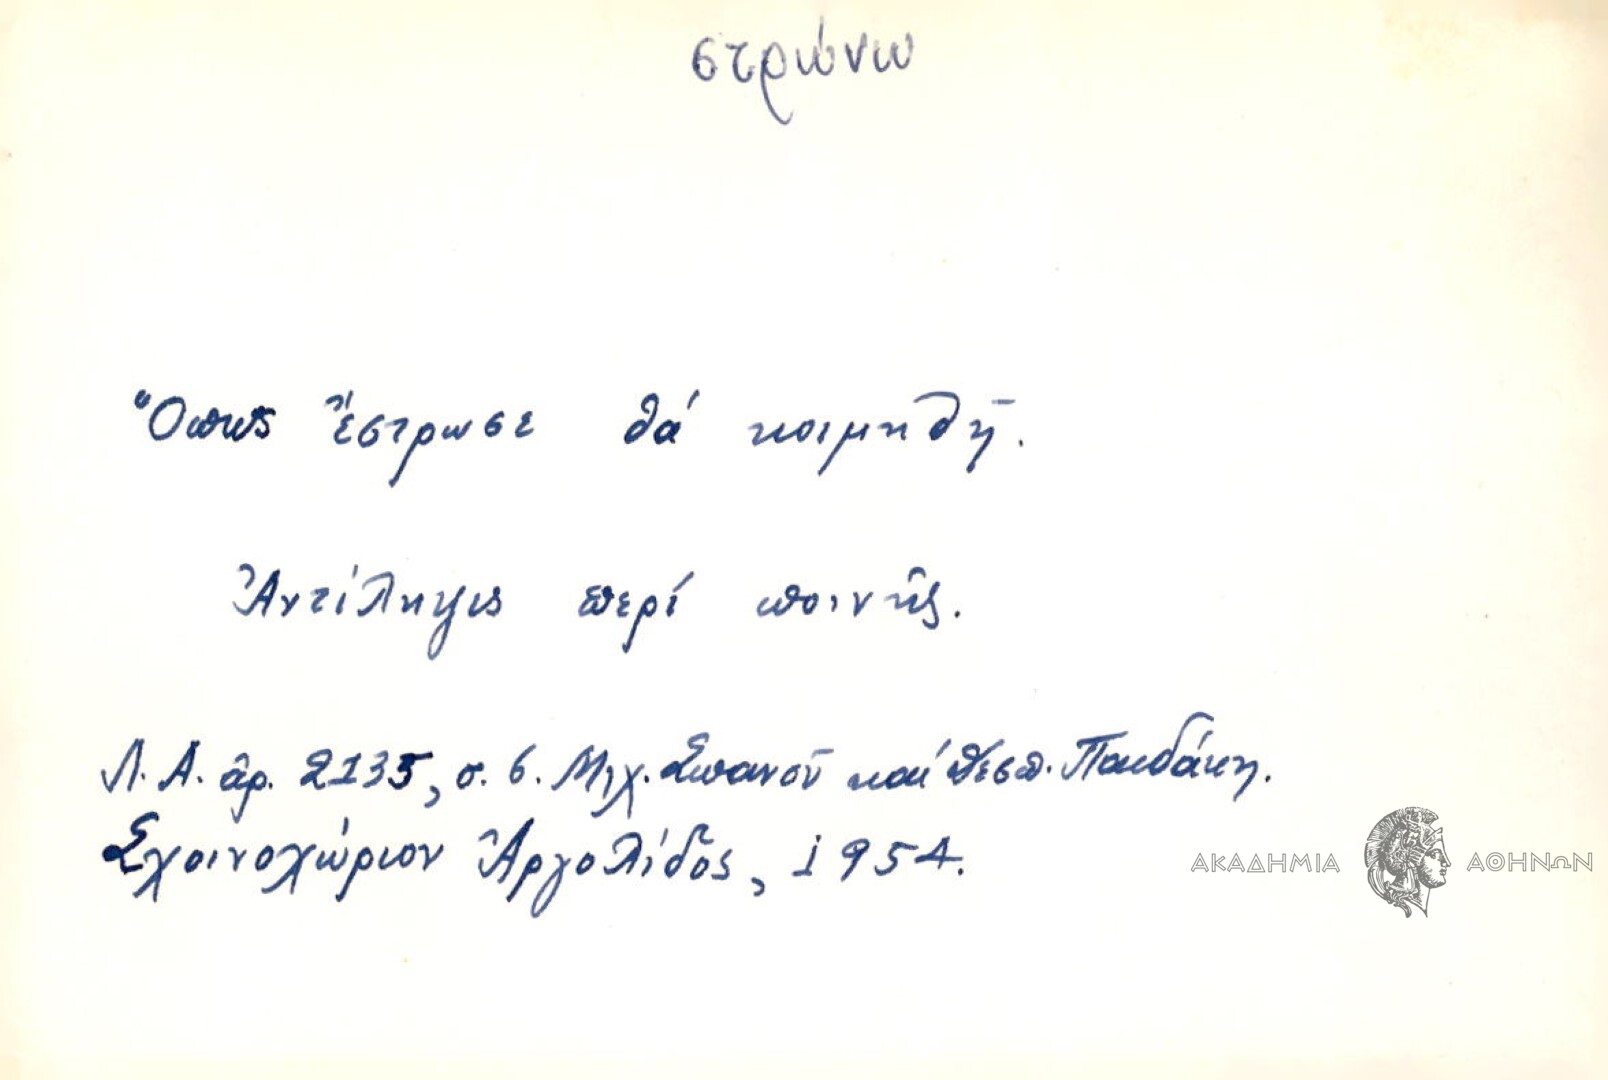 στρώνω
Ὅπως ἔστρωσε θά κοιμηθῆ.
Ἀντίληψις περί ποινῆς.
Λ. Α. ἀρ. 2135, σ. 6. Μιχ. Σπανοῦ καί Θεσπ. Παιδάκη.
Σχοινοχώριον Ἀργολίδος, 1954.
ΑΚΑΔΗΜΙΑ ΑΘΗΝΩΝ